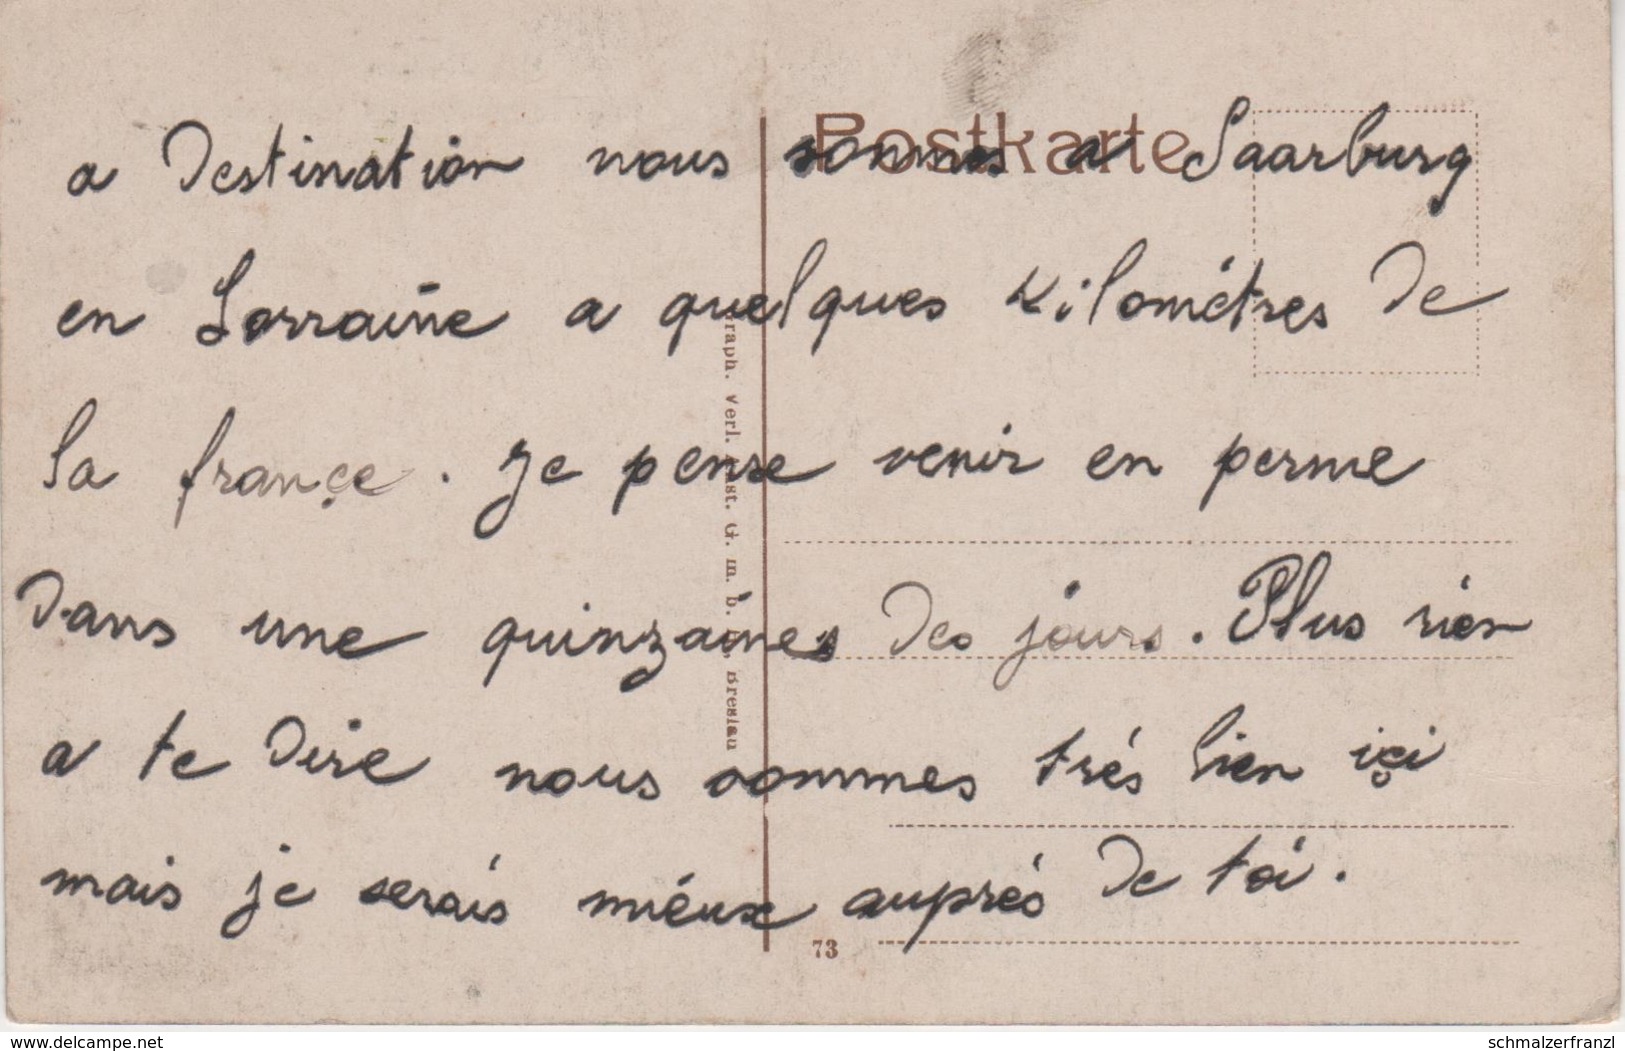 Postkarte
a Destination nous sommes a Saarburg
en Lorraine a quelques Kilométres de
la françe. Je pense venir en perme
Dans une quinzaines Des jours. Plus rien
a te Dire nous sommes trés bien içi
mais je serais miéux auprés De toi.
raph. Verl. Anst. G. m. b. H., Breslau
73
delcampe.net
schmalzerfranzl